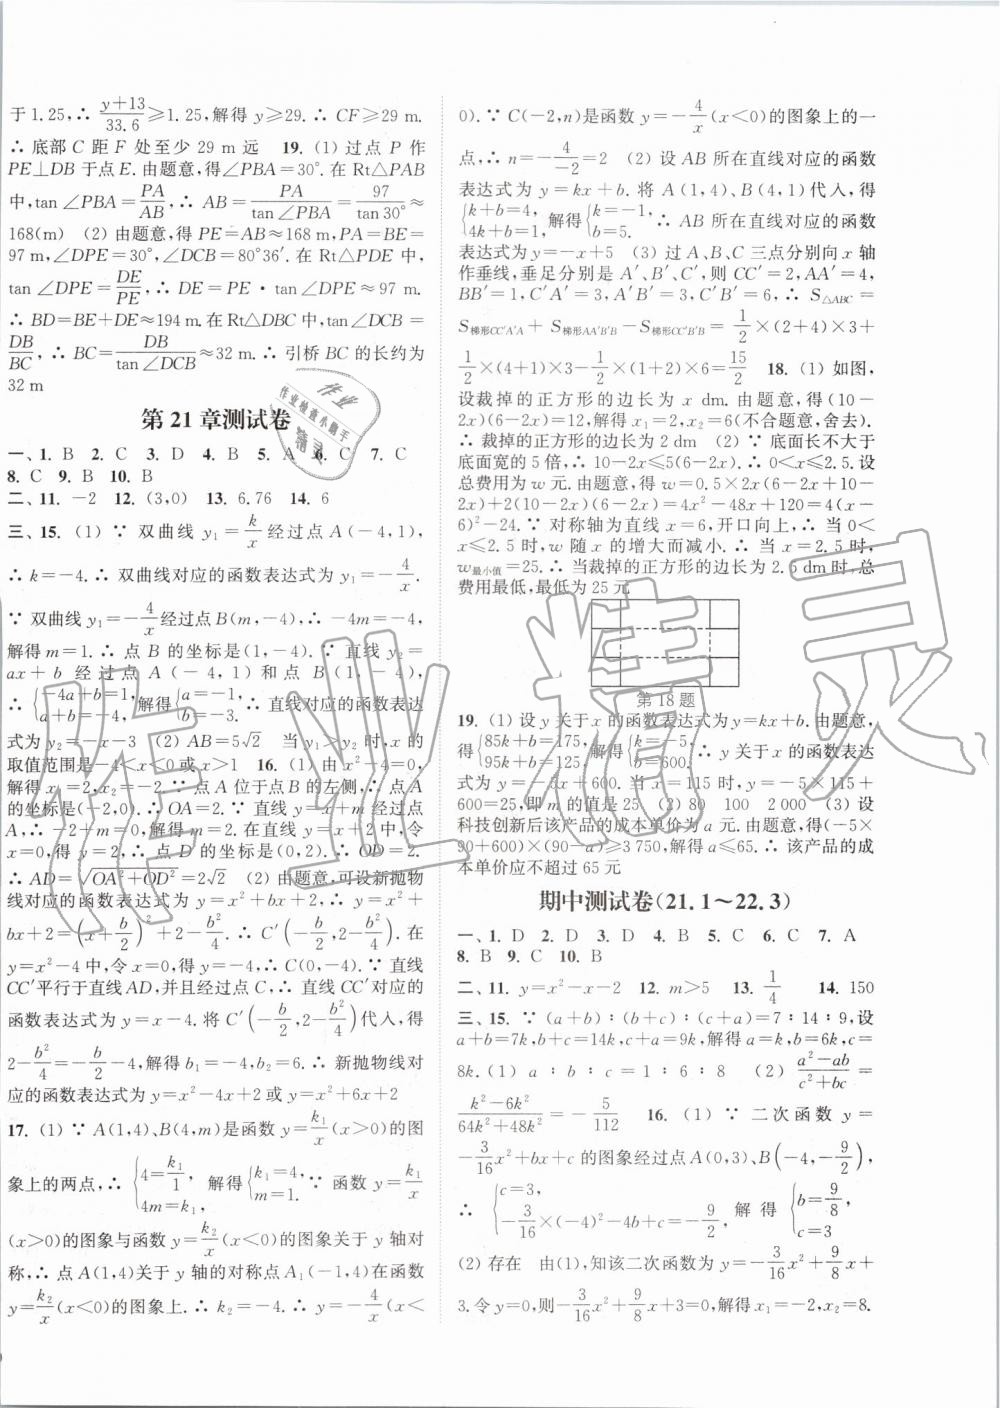 于1.25,∴ (y+13)/33.6≥1.25,解得 y≥29.∴ CF≥29 m.
∴ 底部 C 距 F 处至少 29 m 远　19. (1) 过点 P 作
PE⊥DB 于点 E. 由题意,得∠PBA=30°. 在 Rt△PAB
中,tan ∠PBA=PA/AB,∴ AB=PA/tan∠PBA=97/tan30°≈
168(m)　(2) 由题意,得 PE=AB≈168 m,PA=BE=
97 m,∠DPE=30°,∠DCB=80°36′. 在 Rt△PDE 中,
tan ∠DPE=DE/PE,∴ DE=PE·tan ∠DPE≈97 m.
∴ BD=BE+DE≈194 m. 在 Rt△DBC 中,tan ∠DCB=
DB/BC,∴ BC=DB/tan∠DCB≈32 m.∴ 引桥 BC 的长约为
32 m
第21章测试卷
一、1. B　2. C　3. D　4. B　5. A　6. C　7. C
8. C　9. B　10. B
二、11. -2　12. (3,0)　13. 6.76　14. 6
三、15. (1) ∵ 双曲线 y₁=k/x 经过点 A(-4,1),
∴ k=-4.∴ 双曲线对应的函数表达式为 y₁=-4/x.
∵ 双曲线 y₁=-4/x 经过点 B(m,-4),∴ -4m=-4,
解得 m=1.∴ 点 B 的坐标是(1,-4).∵ 直线 y₂=
ax+b 经过点 A(-4,1)和点 B(1,-4),
∴ {-4a+b=1, a+b=-4, 解得{a=-1, b=-3. ∴ 直线对应的函数表达
式为 y₂=-x-3　(2) AB=5√2　当 y₁>y₂ 时,x 的
取值范围是-4<x<0 或 x>1　16. (1) 由 x²-4=0,
解得 x₁=2,x₂=-2.∵ 点 A 位于点 B 的左侧,∴ 点 A
的坐标是(-2,0).∴ OA=2.∵ 直线 y=x+m 经过点
A,∴ -2+m=0,解得 m=2. 在直线 y=x+2 中,令
x=0,得 y=2.∴ 点 D 的坐标是(0,2).∴ OD=2.
∴ AD=√(OA²+OD²)=2√2　(2) 由题意,可设新抛物
线对应的函数表达式为 y=x²+bx+2,∴ y=x²+
bx+2=(x+b/2)²+2-b²/4.∴ C′(-b/2,2-b²/4). 在
y=x²-4 中,令 x=0,得 y=-4,∴ C(0,-4).∵ 直线
CC′平行于直线 AD,并且经过点 C,∴ 直线 CC′对应的
函数表达式为 y=x-4. 将 C′(-b/2,2-b²/4)代入,得
2-b²/4=-b/2-4,解得 b₁=-4,b₂=6.∴ 新抛物线对
应的函数表达式为 y=x²-4x+2 或 y=x²+6x+2
17. (1) ∵ A(1,4)、B(4,m)是函数 y=k₁/x(x>0)的图
象上的两点,∴ {4=k₁/1, 4m=k₁, 解得{k₁=4, m=1. ∵ 函数 y=k₁/x
(x>0)的图象与函数 y=k₂/x(x<0)的图象关于 y 轴对
称,∴ 点 A(1,4)关于 y 轴的对称点 A₁(-1,4)在函数
y=k₂/x(x<0)的图象上.∴ k₂=-4.∴ y=-4/x(x<
0).∵ C(-2,n)是函数 y=-4/x(x<0)的图象上的一
点,∴ n=-4/-2=2　(2) 设 AB 所在直线对应的函数
表达式为 y=kx+b. 将 A(1,4)、B(4,1)代入,得
{k+b=4, 4k+b=1, 解得{k=-1, b=5. ∴ AB 所在直线对应的函数
表达式为 y=-x+5　(3) 过 A、B、C 三点分别向 x 轴
作垂线,垂足分别为 A′、B′、C′,则 CC′=2,AA′=4,
BB′=1,C′A′=3,A′B′=3,C′B′=6,∴ S△ABC=
S梯形CC′A′A+S梯形AA′B′B-S梯形CC′B′B=1/2×(2+4)×3+
1/2×(4+1)×3-1/2×(1+2)×6=15/2　18. (1) 如图,
设裁掉的正方形的边长为 x dm. 由题意,得(10-
2x)(6-2x)=12,解得 x₁=2,x₂=6(不合题意,舍去).
∴ 裁掉的正方形的边长为 2 dm　(2) ∵ 底面长不大于
底面宽的 5 倍,∴ 10-2x≤5(6-2x).∴ 0<x≤2.5. 设
总费用为 w 元. 由题意,得 w=0.5×2x(6-2x+10-
2x)+2(10-2x)(6-2x)=4x²-48x+120=4(x-
6)²-24.∵ 对称轴为直线 x=6,开口向上,∴ 当 0<
x≤2.5 时,w 随 x 的增大而减小.∴ 当 x=2.5 时,
w最小值=25.∴ 当裁掉的正方形的边长为 2.5 dm 时,总
费用最低,最低为 25 元
第18题
19. (1) 设 y 关于 x 的函数表达式为 y=kx+b. 由题意,
得{85k+b=175, 95k+b=125, 解得{k=-5, b=600. ∴ y 关于 x 的函数表达
式为 y=-5x+600. 当 x=115 时,y=-5×115+
600=25,即 m 的值是 25　(2) 80　100　2 000　(3) 设
科技创新后该产品的成本单价为 a 元. 由题意,得(-5×
90+600)×(90-a)≥3 750,解得 a≤65.∴ 该产品的成
本单价应不超过 65 元
期中测试卷(21.1～22.3)
一、1. D　2. D　3. D　4. B　5. C　6. C　7. A
8. B　9. C　10. B
二、11. y=x²-x-2　12. m>5　13. 1/4　14. 150
三、15. ∵ (a+b)∶(b+c)∶(c+a)=7∶14∶9,设
a+b=7k,b+c=14k,c+a=9k,解得 a=k,b=6k,c=
8k. (1) a∶b∶c=1∶6∶8　(2) (a²-ab)/(c²+bc)=
(k²-6k²)/(64k²+48k²)=-5/112　16. (1) ∵ 二次函数 y=
-3/16x²+bx+c 的图象经过点 A(0,3)、B(-4,-9/2),
∴ {c=3, -3/16×(-4)²-4b+c=-9/2, 解得{b=9/8, c=3
(2) 存在　由(1),知该二次函数为 y=-3/16x²+9/8x+
3. 令 y=0,则-3/16x²+9/8x+3=0,解得 x₁=-2,x₂=8.
作业
作业检查小帮手
精灵
作业精灵